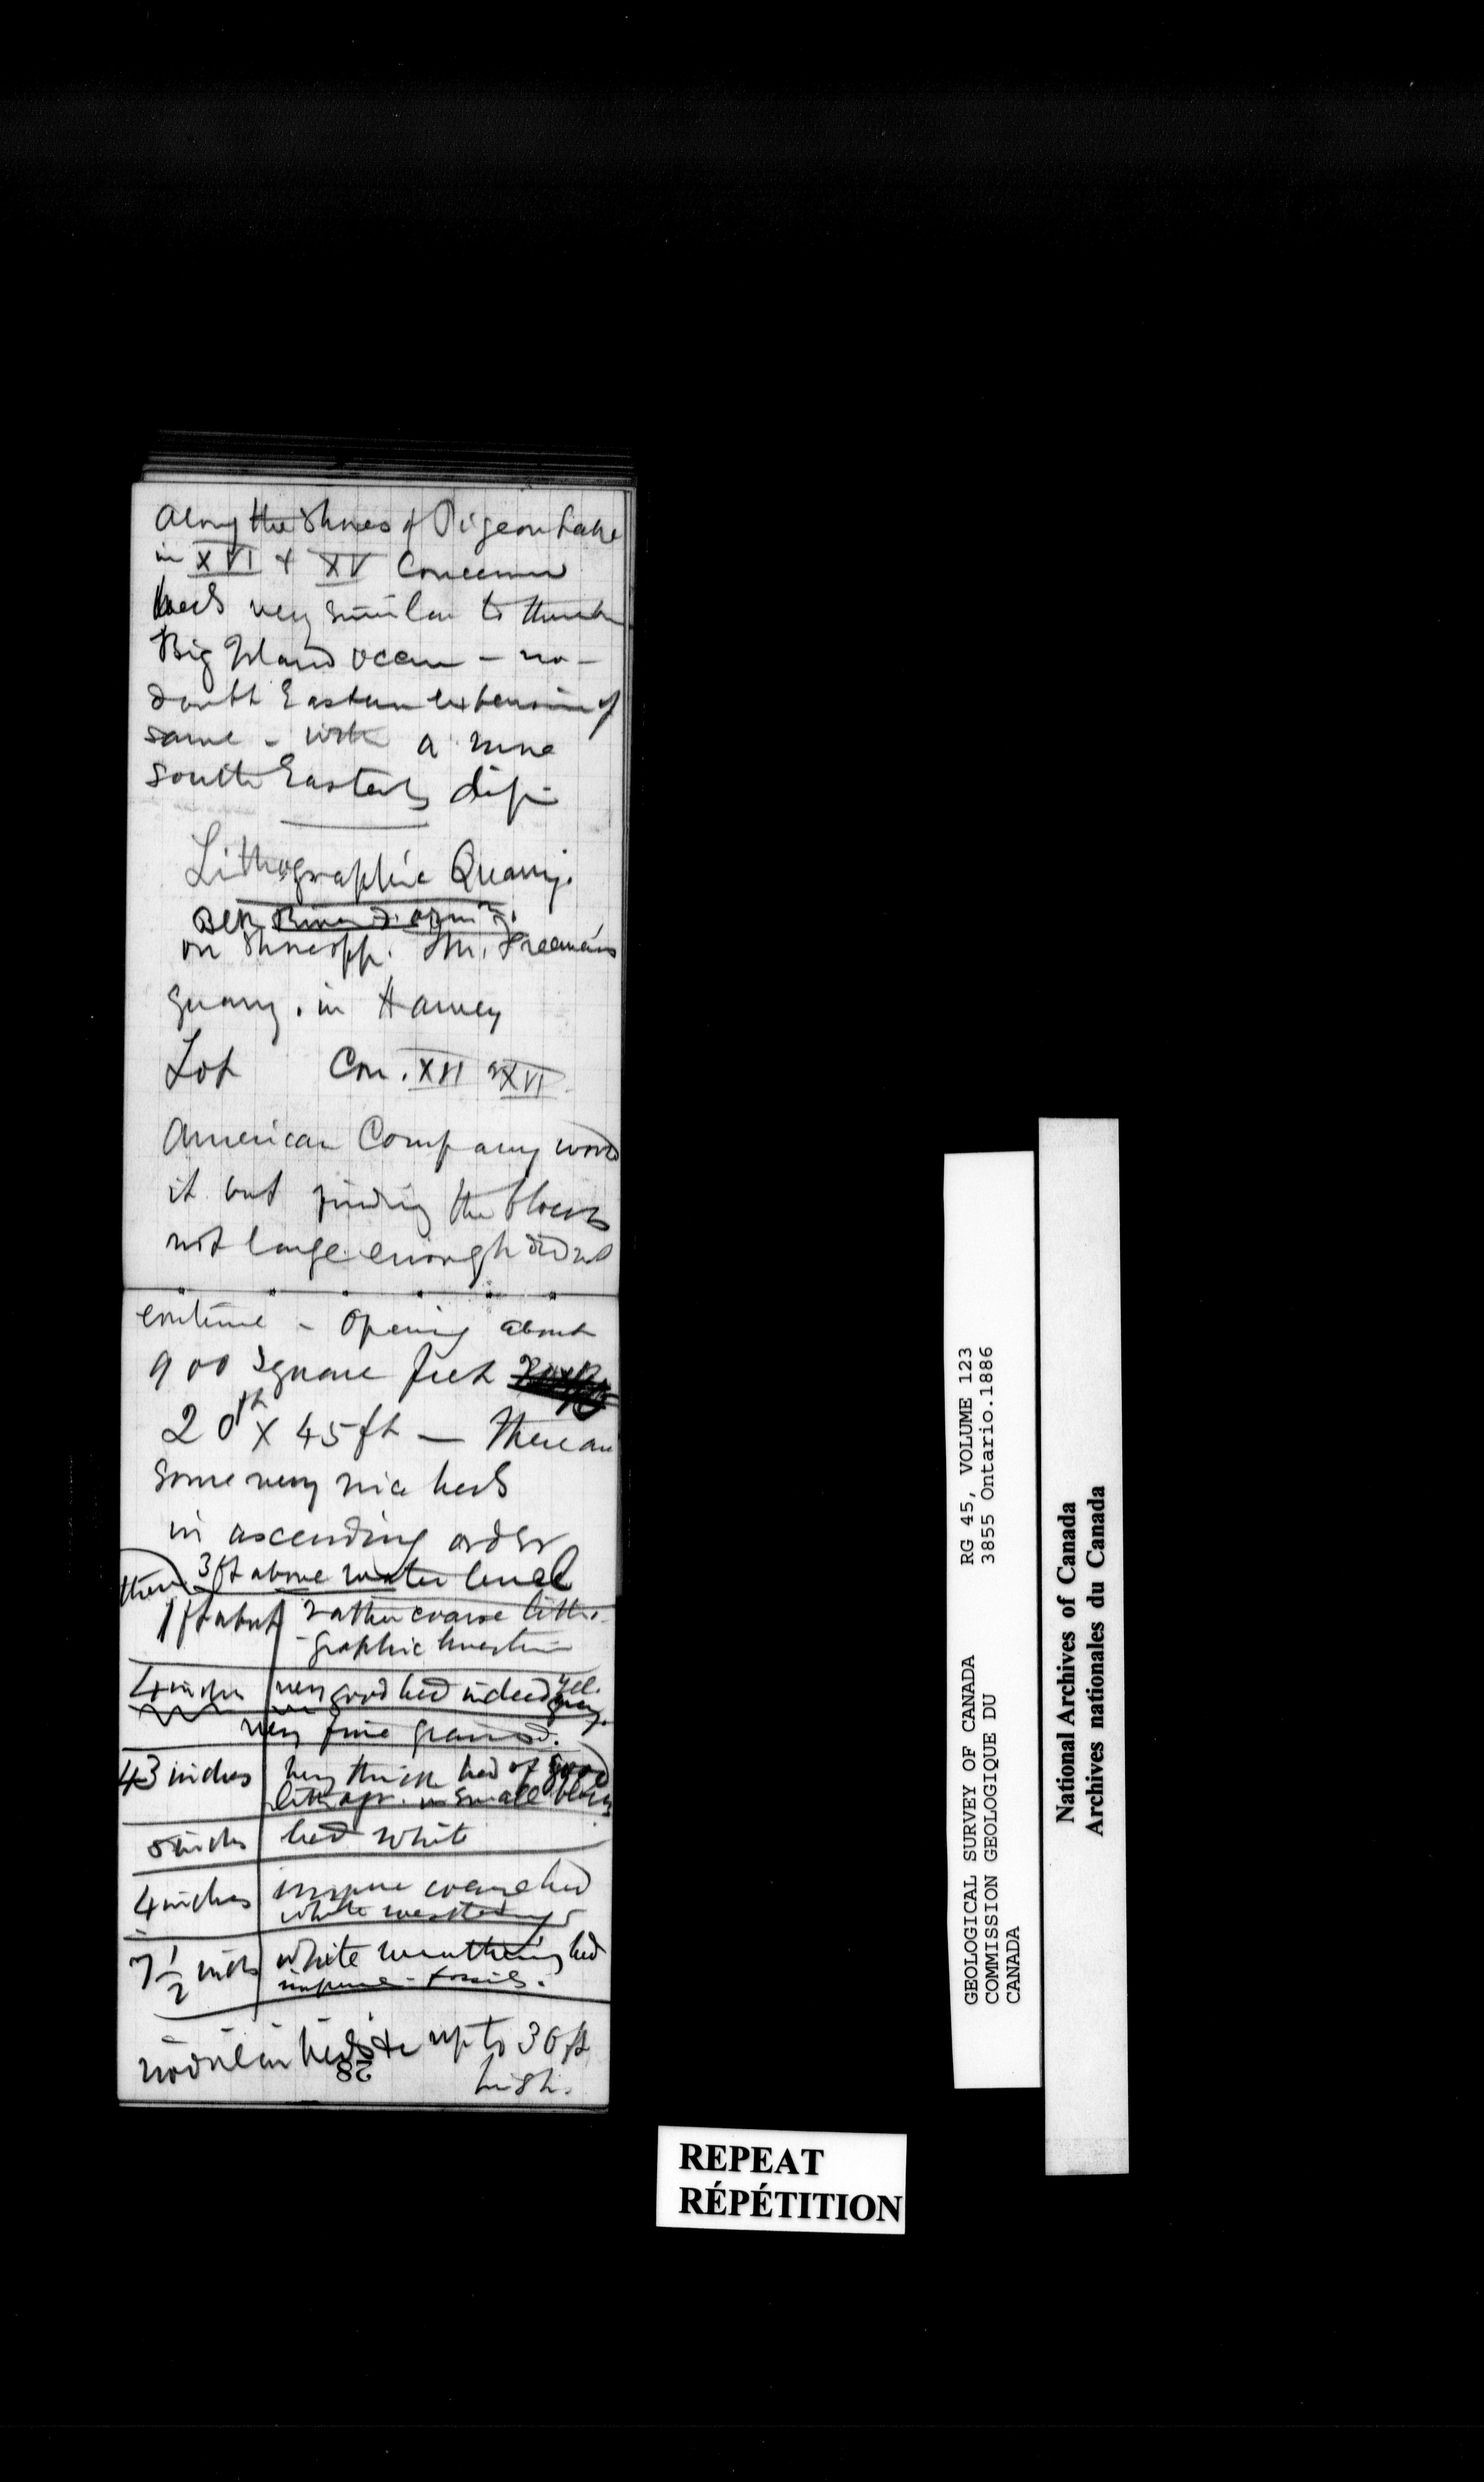 Along the Shores of Pigeon Lake
in XVI & XV Concession
beds very similar to those on
Big Island occur - no -
doubt Eastern extension of
same - with a more
South Easterly dip
Lithographic Quarry.
on Shore opp. Mr. Freeman's
quarry. in Harvey
Lot Con. XVI XVI
American Company
it but finding the blocks
not large enough did not
continue - Opening about
900 square feet
20ft X 45ft - There are
some very nice beds
in ascending order
then 3ft above water level
1ft about rather coarse litho-
-graphic limestone
4 inches very good bed indeed yel. grey.
very fine grained.
43 inches very thick bed of good
lithogr. in small blocks
5 inches bed white
4 inches impure coarse bed
white weathering
7 1/2 inches white weathering bed
impure - fossils.
nodular beds &c up to 30ft
high.
28
GEOLOGICAL SURVEY OF CANADA RG 45, VOLUME 123
COMMISSION GEOLOGIQUE DU 3855 Ontario.1886
CANADA
National Archives of Canada
Archives nationales du Canada
REPEAT
RÉPÉTITION